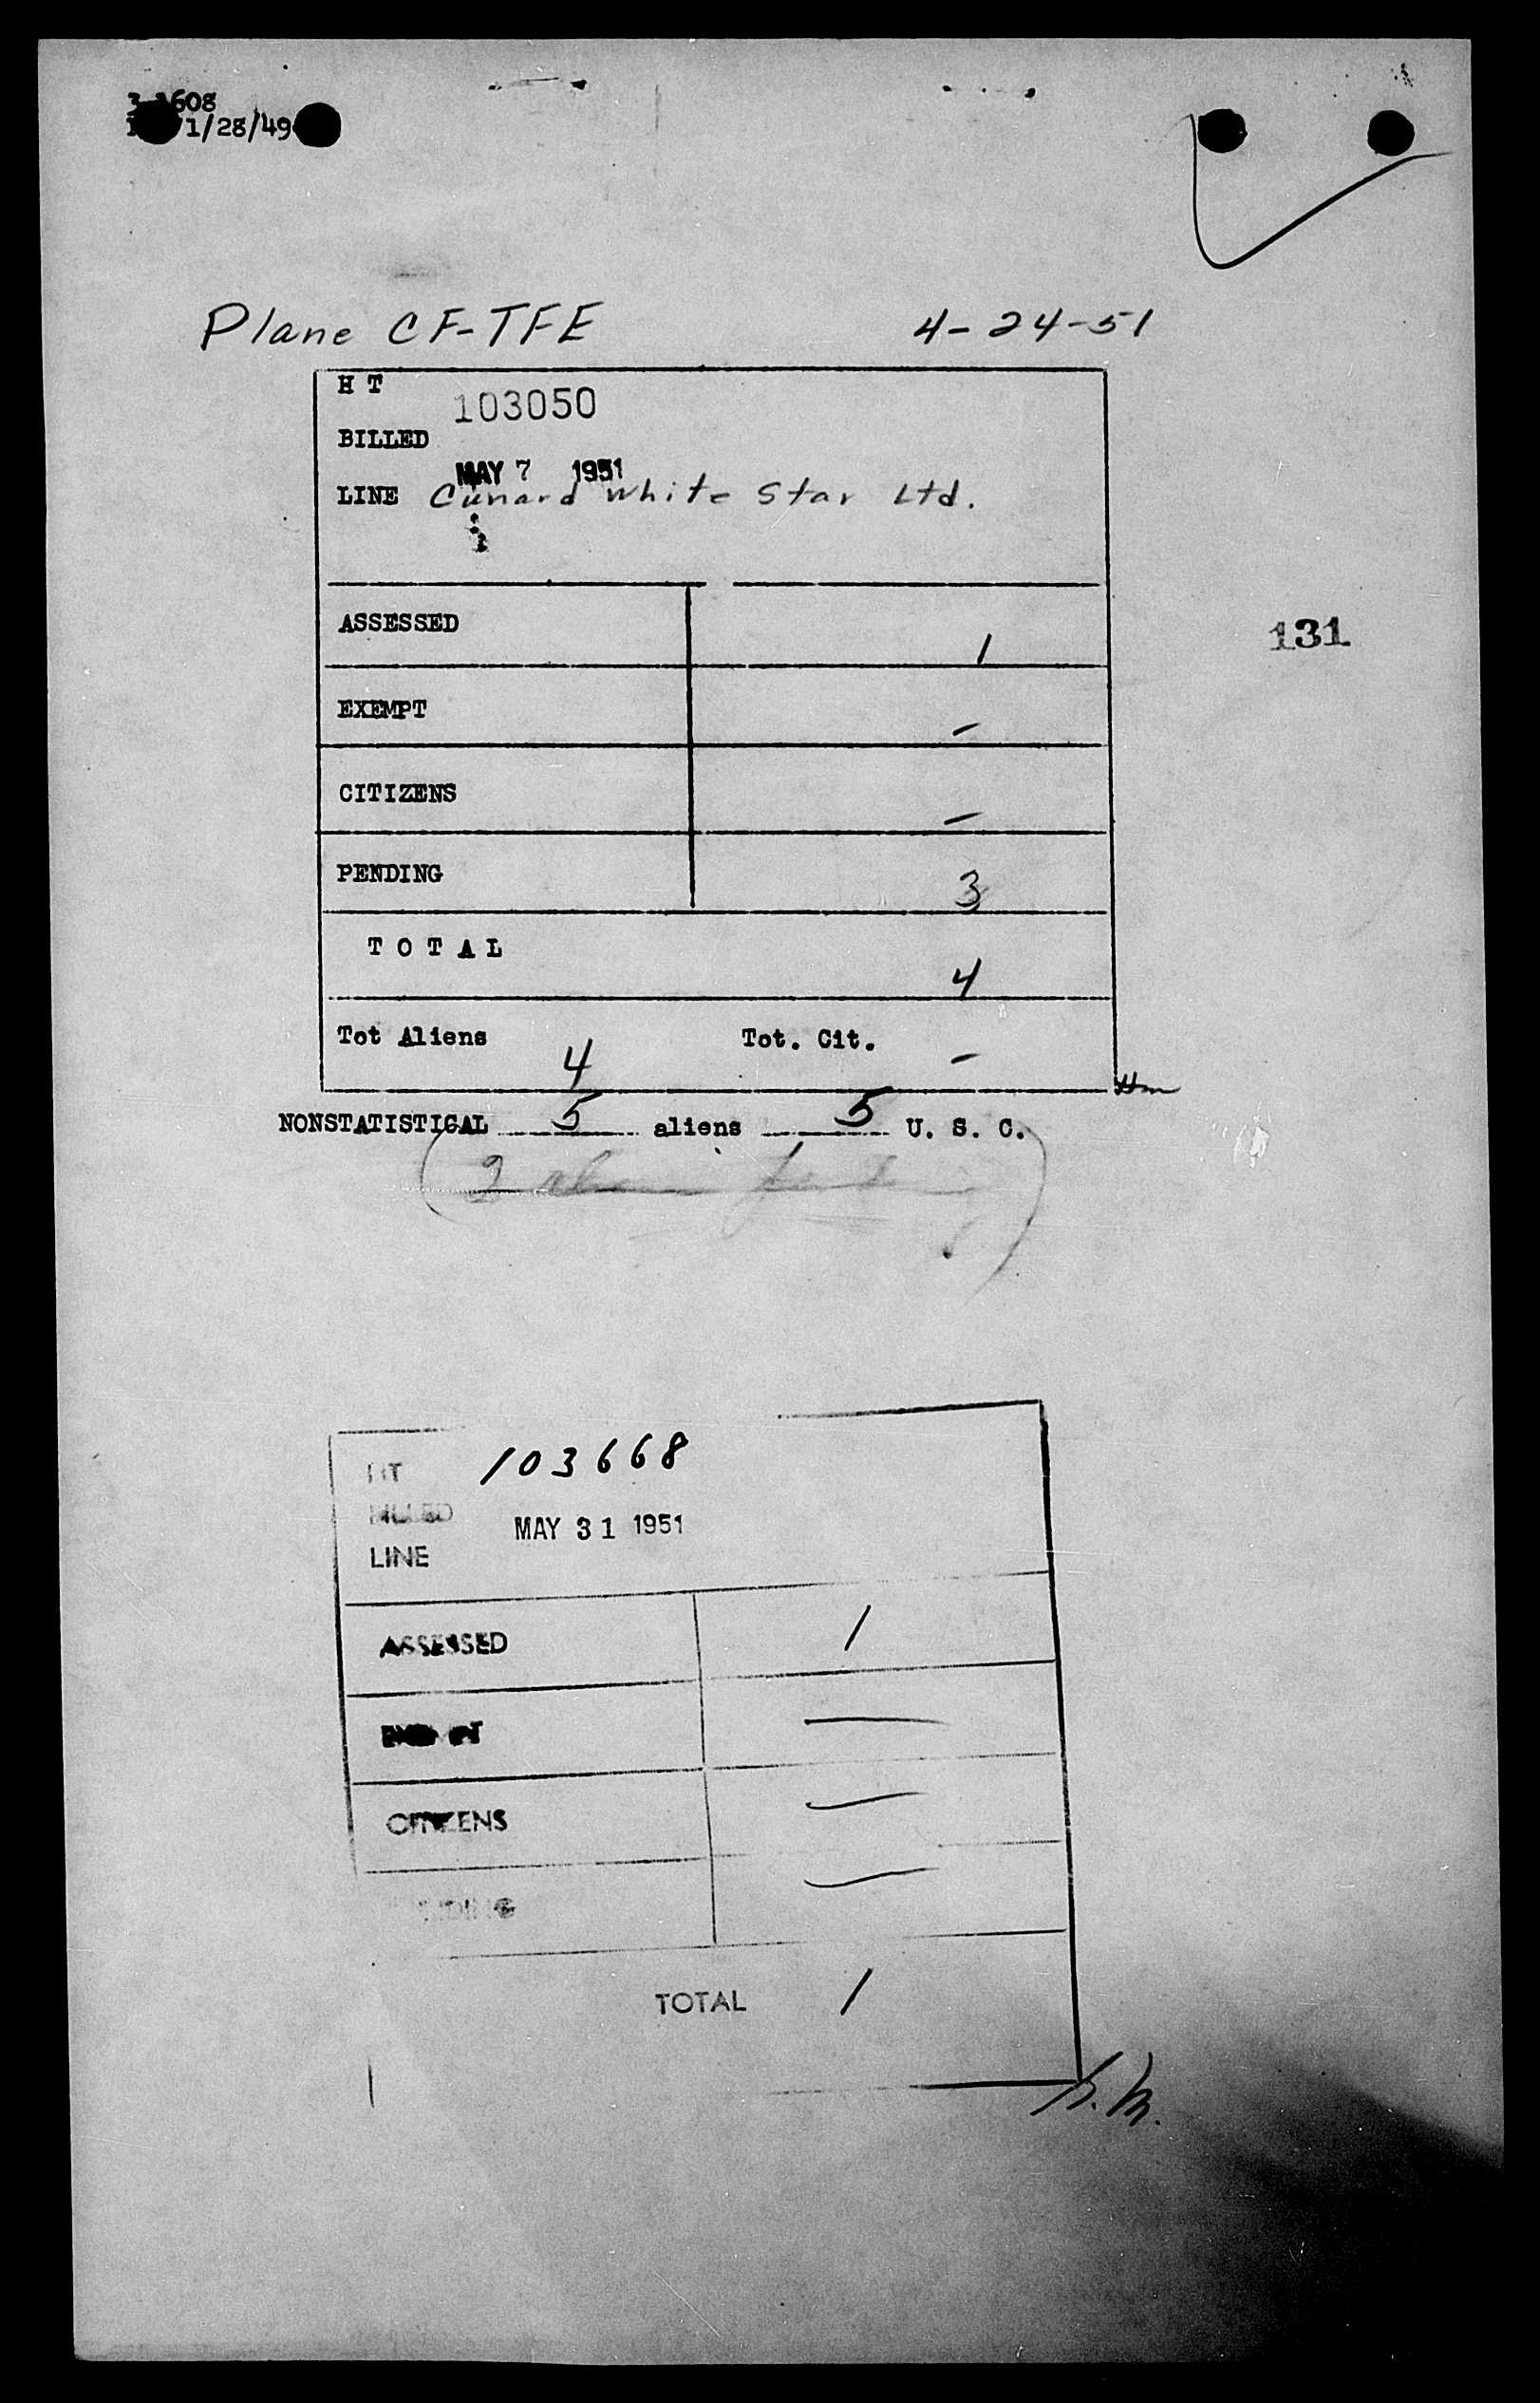 1/28/49
Plane CF-TFE 4-24-51
H T 103050
BILLED
MAY 7 1951
LINE Cunard White Star Ltd.
131
ASSESSED 1
EXEMPT -
CITIZENS -
PENDING 3
T O T A L 4
Tot Aliens 4 Tot. Cit. -
NONSTATISTICAL 5 aliens 5 U. S. C.
HT 103668
BILLED MAY 31 1951
LINE
ASSESSED 1
EXEMPT —
CITIZENS —
PENDING —
TOTAL 1